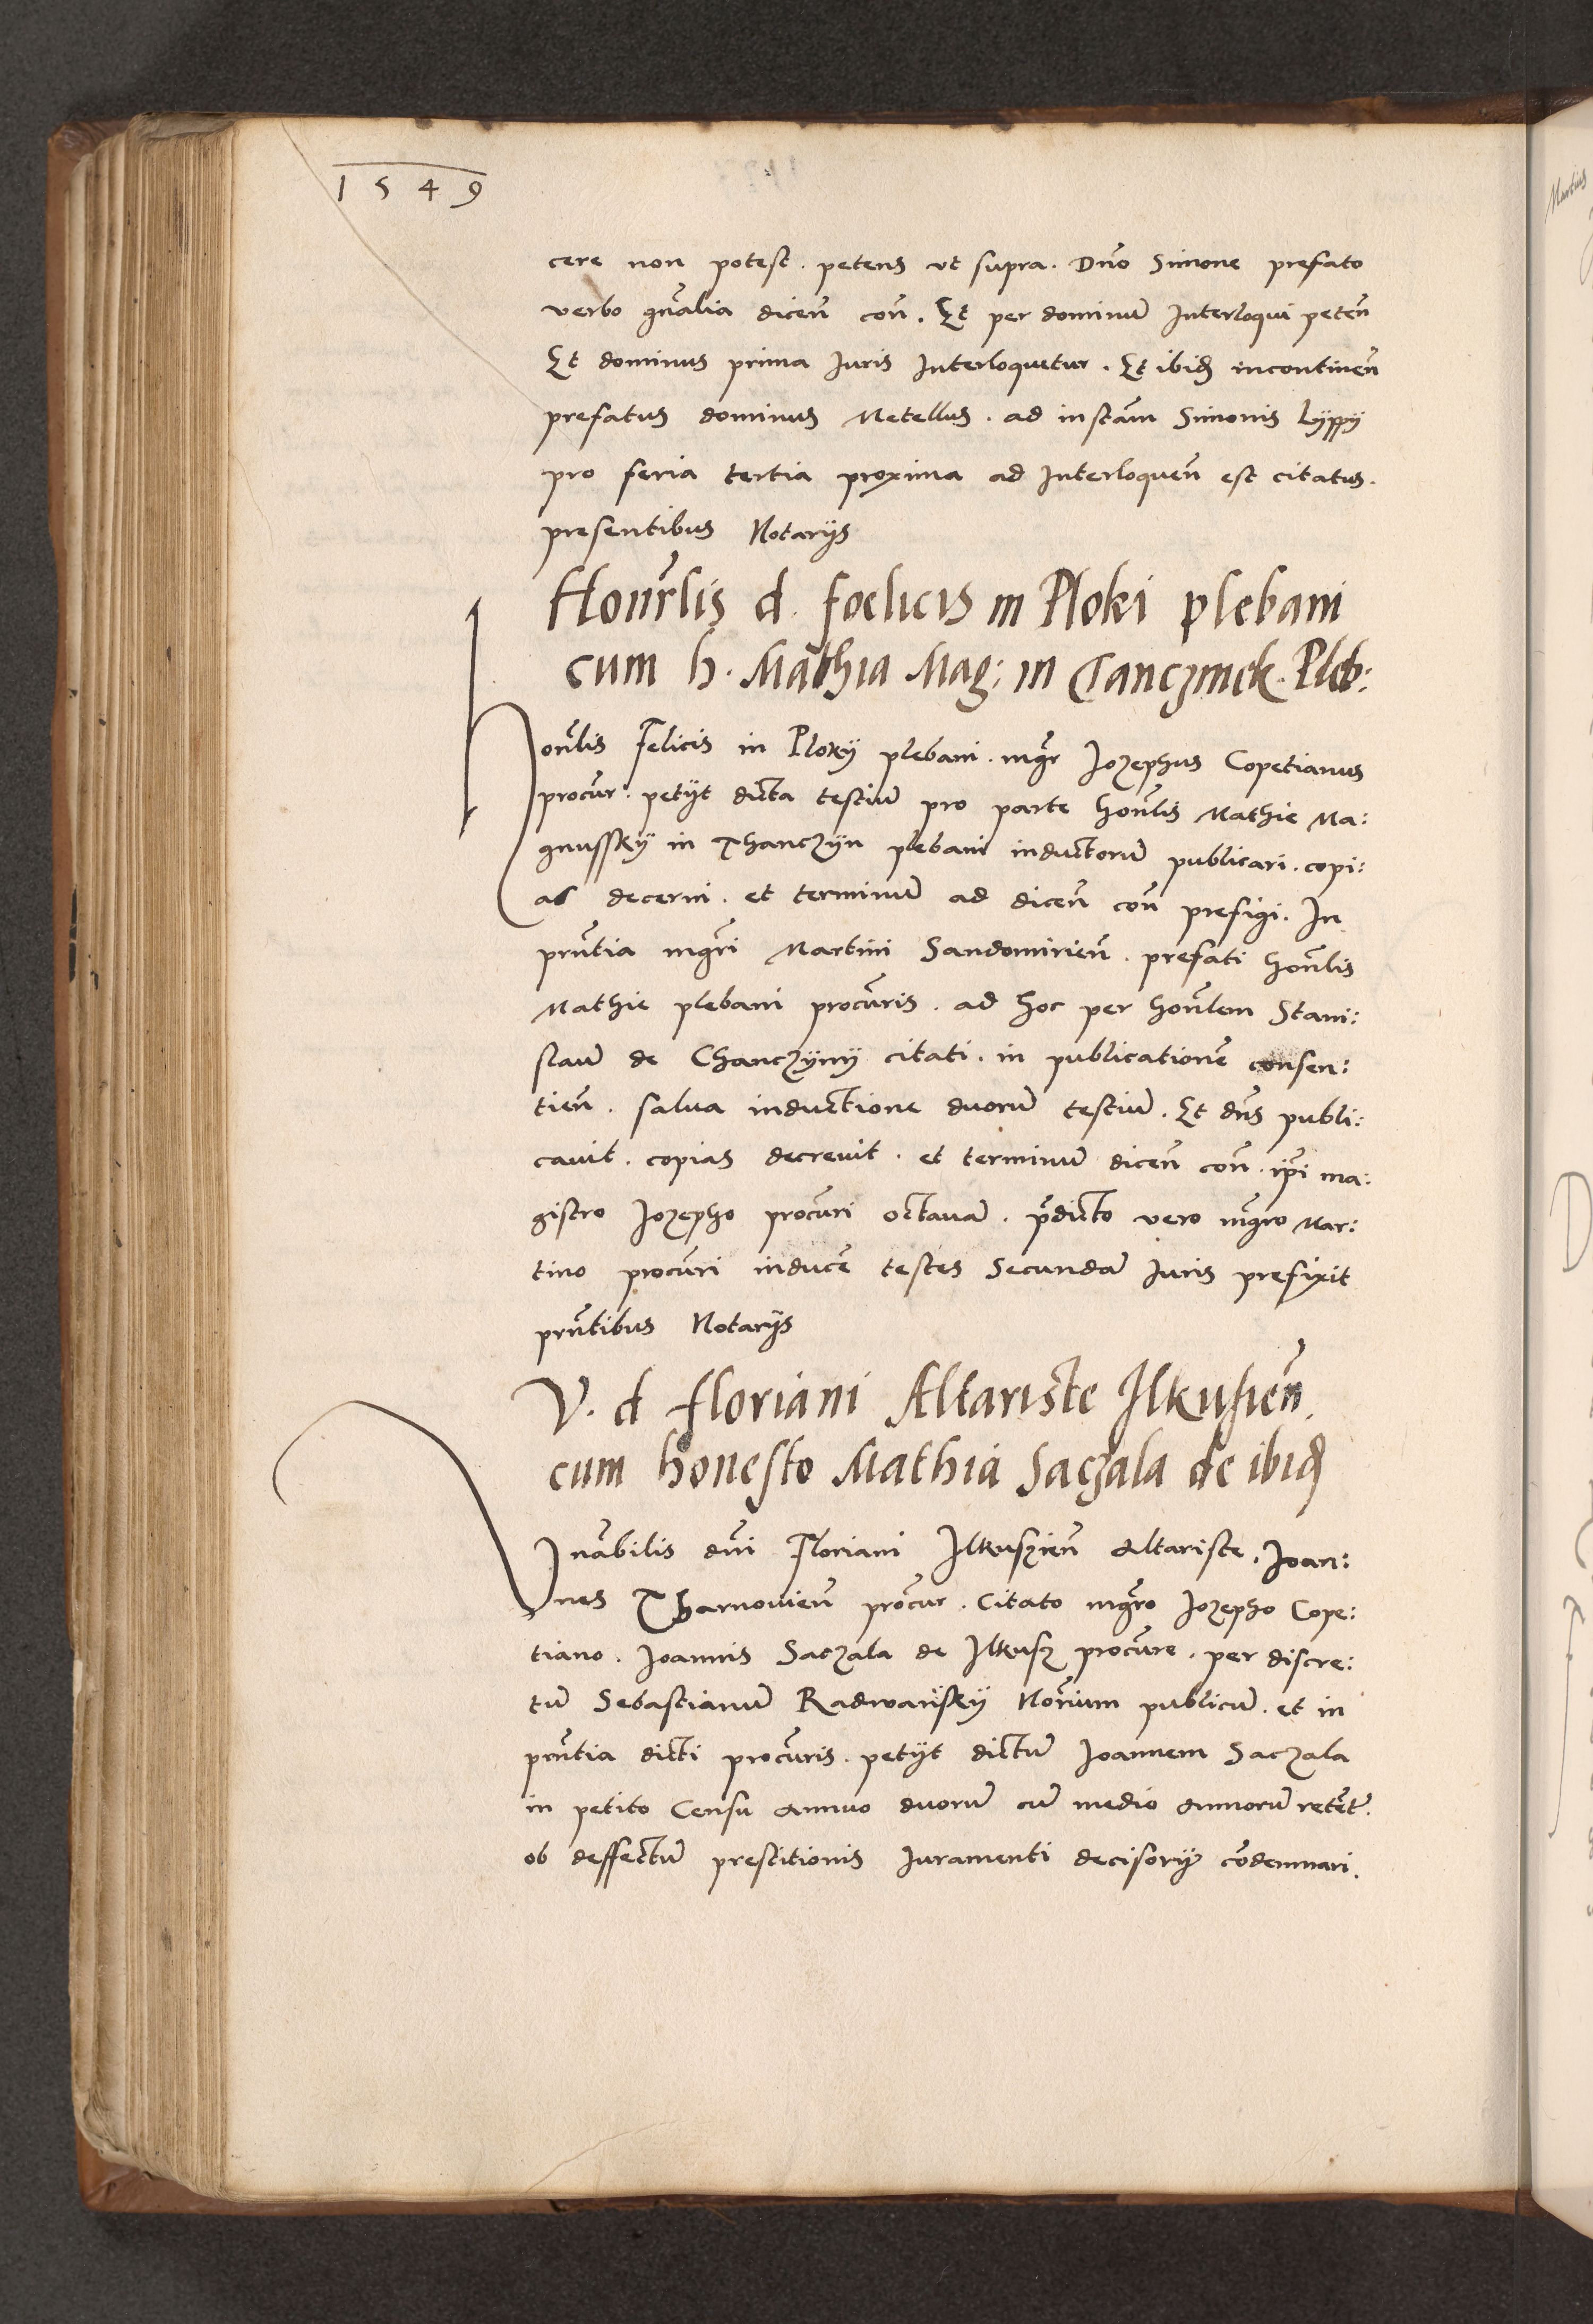 1549
cere non potest. petens vt supra. Dno Simone prefato
verbo gnalia dicen con. Et per dominu Interloqui peten
Et dominus prima Iuris Interloquetur. Et ibid incontinen
prefatus dominus Metellus. ad instam Simonis Lyppy
pro feria tertia proxima ad Interloquen est citatus.
presentibus Notarijs
Honrlis d. foelicis in Ploki plebani
cum h. Mathia Mag: in Tanczinek. Pleb:
Honlis Felicis in Ploky plebani. mgr Jozephus Copetianus
procur. petijt dicta testiu pro parte honlis Mathie Ma:
gnussky in Thanczyn plebani inductoru publicari. copi:
as decerni. et terminu ad dicen con prefigi. In
prntia mgri Martini Sandomirien. prefati honlis
Mathie plebani procuris. ad hoc per honlem Stani:
slau de Chanczyny citati. in publicatione consen:
tien. salua inductione duoru testiu. Et dns publi:
cauit. copias decreuit. et terminu dicen con. ipi ma:
gistro Jozepho procuri octaua. pdicto vero mgro Mar:
tino procuri induce testes Secunda Iuris prefixit
prntibus Notarijs
V. d floriani Altariste Ilkusien.
cum honesto Mathia Saczala de ibid
Vnabilis dni Floriani Ilkuszien Altariste. Joan:
nes Tharnouien procur. Citato mgro Jozepho Cope:
tiano. Joannis Saczala de Ilkusz procure. per discre:
tu Sebastianu Radwansky Norium publicu. et in
prntia dicti procuris. petijt dictu Joannem Saczala
in petito Censu Annuo duoru cu medio Annoru retent.
ob deffectu prestitionis Iuramenti decisorij condemnari.